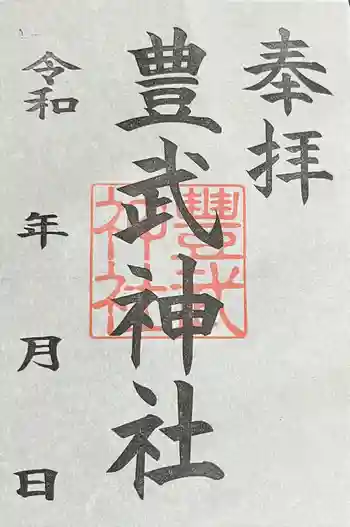 奉拝
豊武神社
豐武
神社
令和 年 月 日